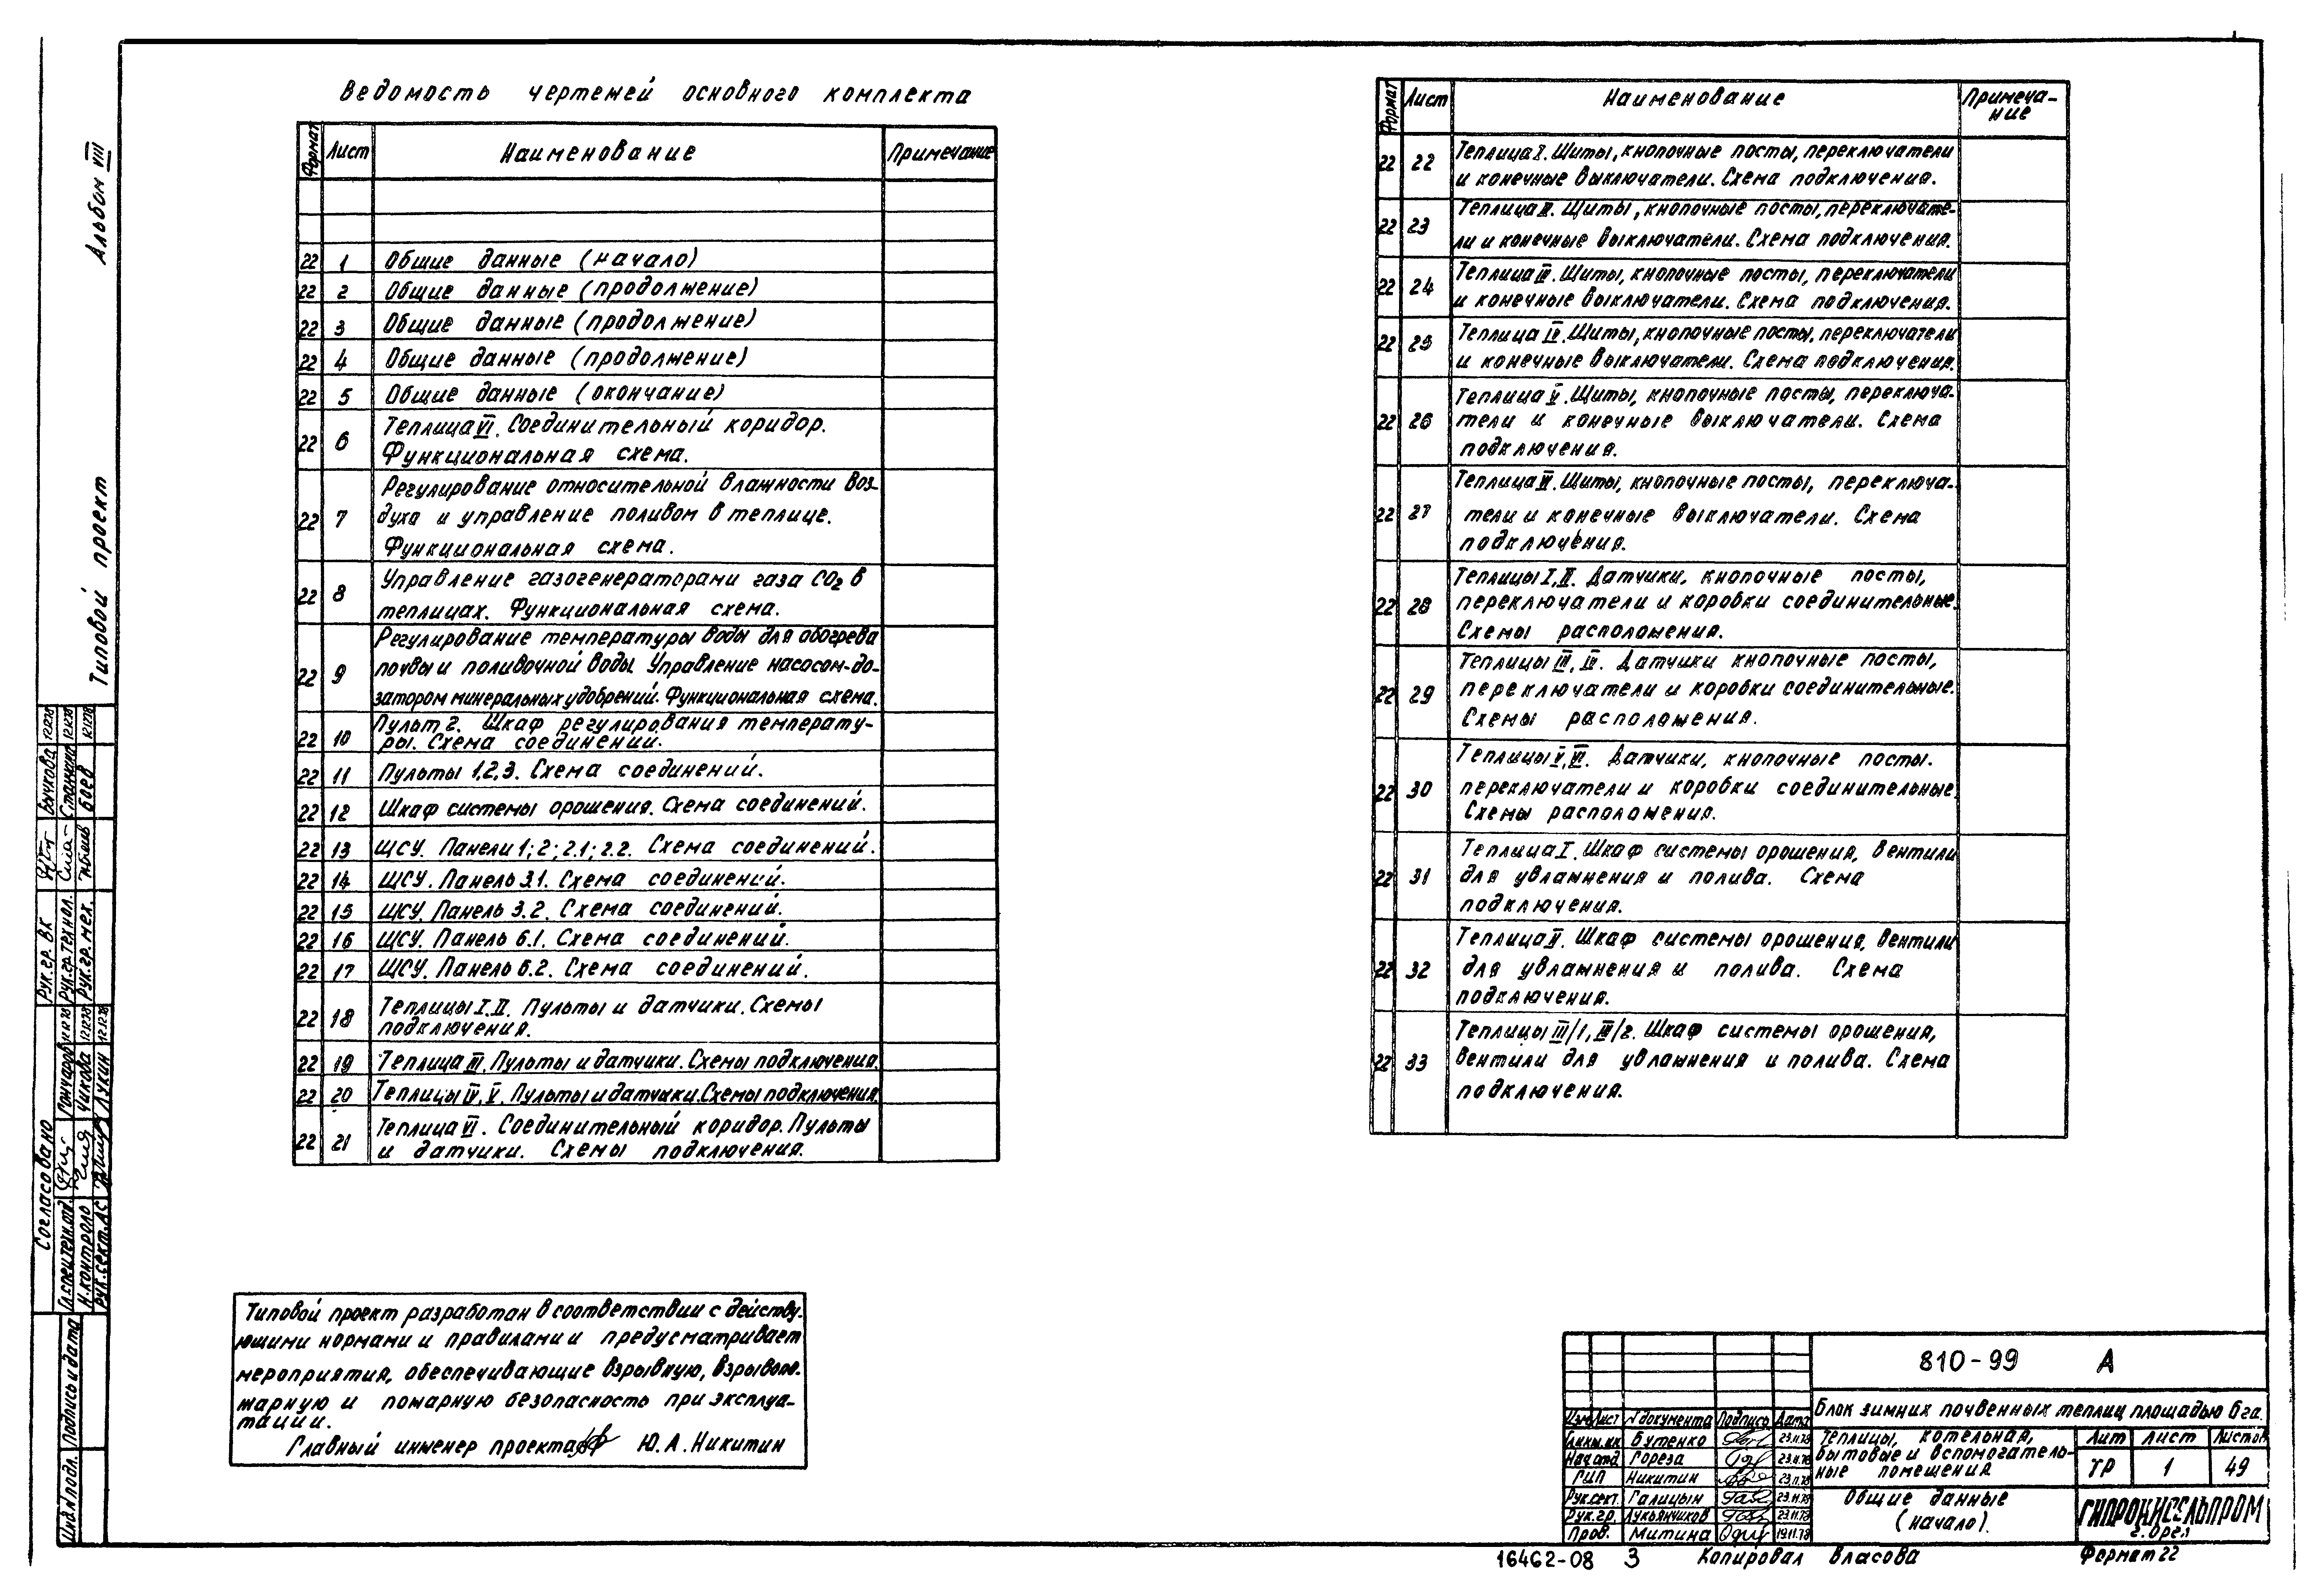 Ведомость чертежей основного комплекта
Формат Лист Наименование Примечание
22 1 Общие данные (начало)
22 2 Общие данные (продолжение)
22 3 Общие данные (продолжение)
22 4 Общие данные (продолжение)
22 5 Общие данные (окончание)
22 6 Теплица VI. Соединительный коридор.
Функциональная схема.
22 7 Регулирование относительной влажности воз-
духа и управление поливом в теплице.
Функциональная схема.
22 8 Управление газогенераторами газа CO2 в
теплицах. Функциональная схема.
22 9 Регулирование температуры воды для обогрева
почвы и поливочной воды. Управление насосом-до-
затором минеральных удобрений. Функциональная схема.
22 10 Пульт 2. Шкаф регулирования температу-
ры. Схема соединений.
22 11 Пульты 1,2,3. Схема соединений.
22 12 Шкаф системы орошения. Схема соединений.
22 13 ЩСУ. Панели 1; 2; 2.1; 2.2. Схема соединений.
22 14 ЩСУ. Панель 3.1. Схема соединений.
22 15 ЩСУ. Панель 3.2. Схема соединений.
22 16 ЩСУ. Панель 6.1. Схема соединений.
22 17 ЩСУ. Панель 6.2. Схема соединений.
22 18 Теплицы I.II. Пульты и датчики. Схемы
подключения.
22 19 Теплица III. Пульты и датчики. Схемы подключения.
22 20 Теплицы IV, V. Пульты и датчики. Схемы подключения.
22 21 Теплица VI. Соединительный коридор. Пульты
и датчики. Схемы подключения.
Формат Лист Наименование Примеча-
ние
22 22 Теплица I. Щиты, кнопочные посты, переключатели
и конечные выключатели. Схема подключения.
22 23 Теплица II. Щиты, кнопочные посты, переключате-
ли и конечные выключатели. Схема подключения.
22 24 Теплица III. Щиты, кнопочные посты, переключатели
и конечные выключатели. Схема подключения.
22 25 Теплица IV. Щиты, кнопочные посты, переключатели
и конечные выключатели. Схема подключения.
22 26 Теплица V. Щиты, кнопочные посты, переключа-
тели и конечные выключатели. Схема
подключения.
22 27 Теплица VI. Щиты, кнопочные посты, переключа-
тели и конечные выключатели. Схема
подключения.
22 28 Теплицы I, II. Датчики, кнопочные посты,
переключатели и коробки соединительные.
Схемы расположения.
22 29 Теплицы III, IV. Датчики кнопочные посты,
переключатели и коробки соединительные.
Схемы расположения.
22 30 Теплицы V, VI. Датчики, кнопочные посты.
переключатели и коробки соединительные.
Схемы расположения.
22 31 Теплица I. Шкаф системы орошения, вентили
для увлажнения и полива. Схема
подключения.
22 32 Теплица II. Шкаф системы орошения, вентили
для увлажнения и полива. Схема
подключения.
22 33 Теплицы III/1, III/2. Шкаф системы орошения,
вентили для увлажнения и полива. Схема
подключения.
Типовой проект разработан в соответствии с действу-
ющими нормами и правилами и предусматривает
мероприятия, обеспечивающие взрывную, взрывопо-
жарную и пожарную безопасность при эксплуа-
тации.
Главный инженер проекта Ю.А.Никитин
810-99 А
Блок зимних почвенных теплиц площадью 6га.
Изм Лист № документа Подпись Дата
Гл.инж.ин. Бутенко 23.11.78
Нач.отд Гореза 23.11.78
ГИП Никитин 23.11.78
Рук.сект. Галицын 23.11.78
Рук.гр. Лукьянчиков 23.11.78
Пров. Митина 19.11.78
Теплицы, котельная,
бытовые и вспомогатель-
ные помещения
Лит Лист Листов
ТР 1 49
Общие данные
(начало).
ГИПРОНИСЕЛЬПРОМ
г. Орел
16462-08 3 Копировал Власова Формат 22
Альбом VIII
Типовой проект
Согласовано
Рук.гр. ВК Бычкова 12.12.78
Рук.гр.технол. 12.12.78
Рук.гр.мех. Боев 12.12.78
Гл.спец.тех.отд. Гончаров 12.12.78
Н.контроль Чикова 12.12.78
Рук.сект.АС Лукин 12.12.78
Инв.№ подл. Подпись и дата